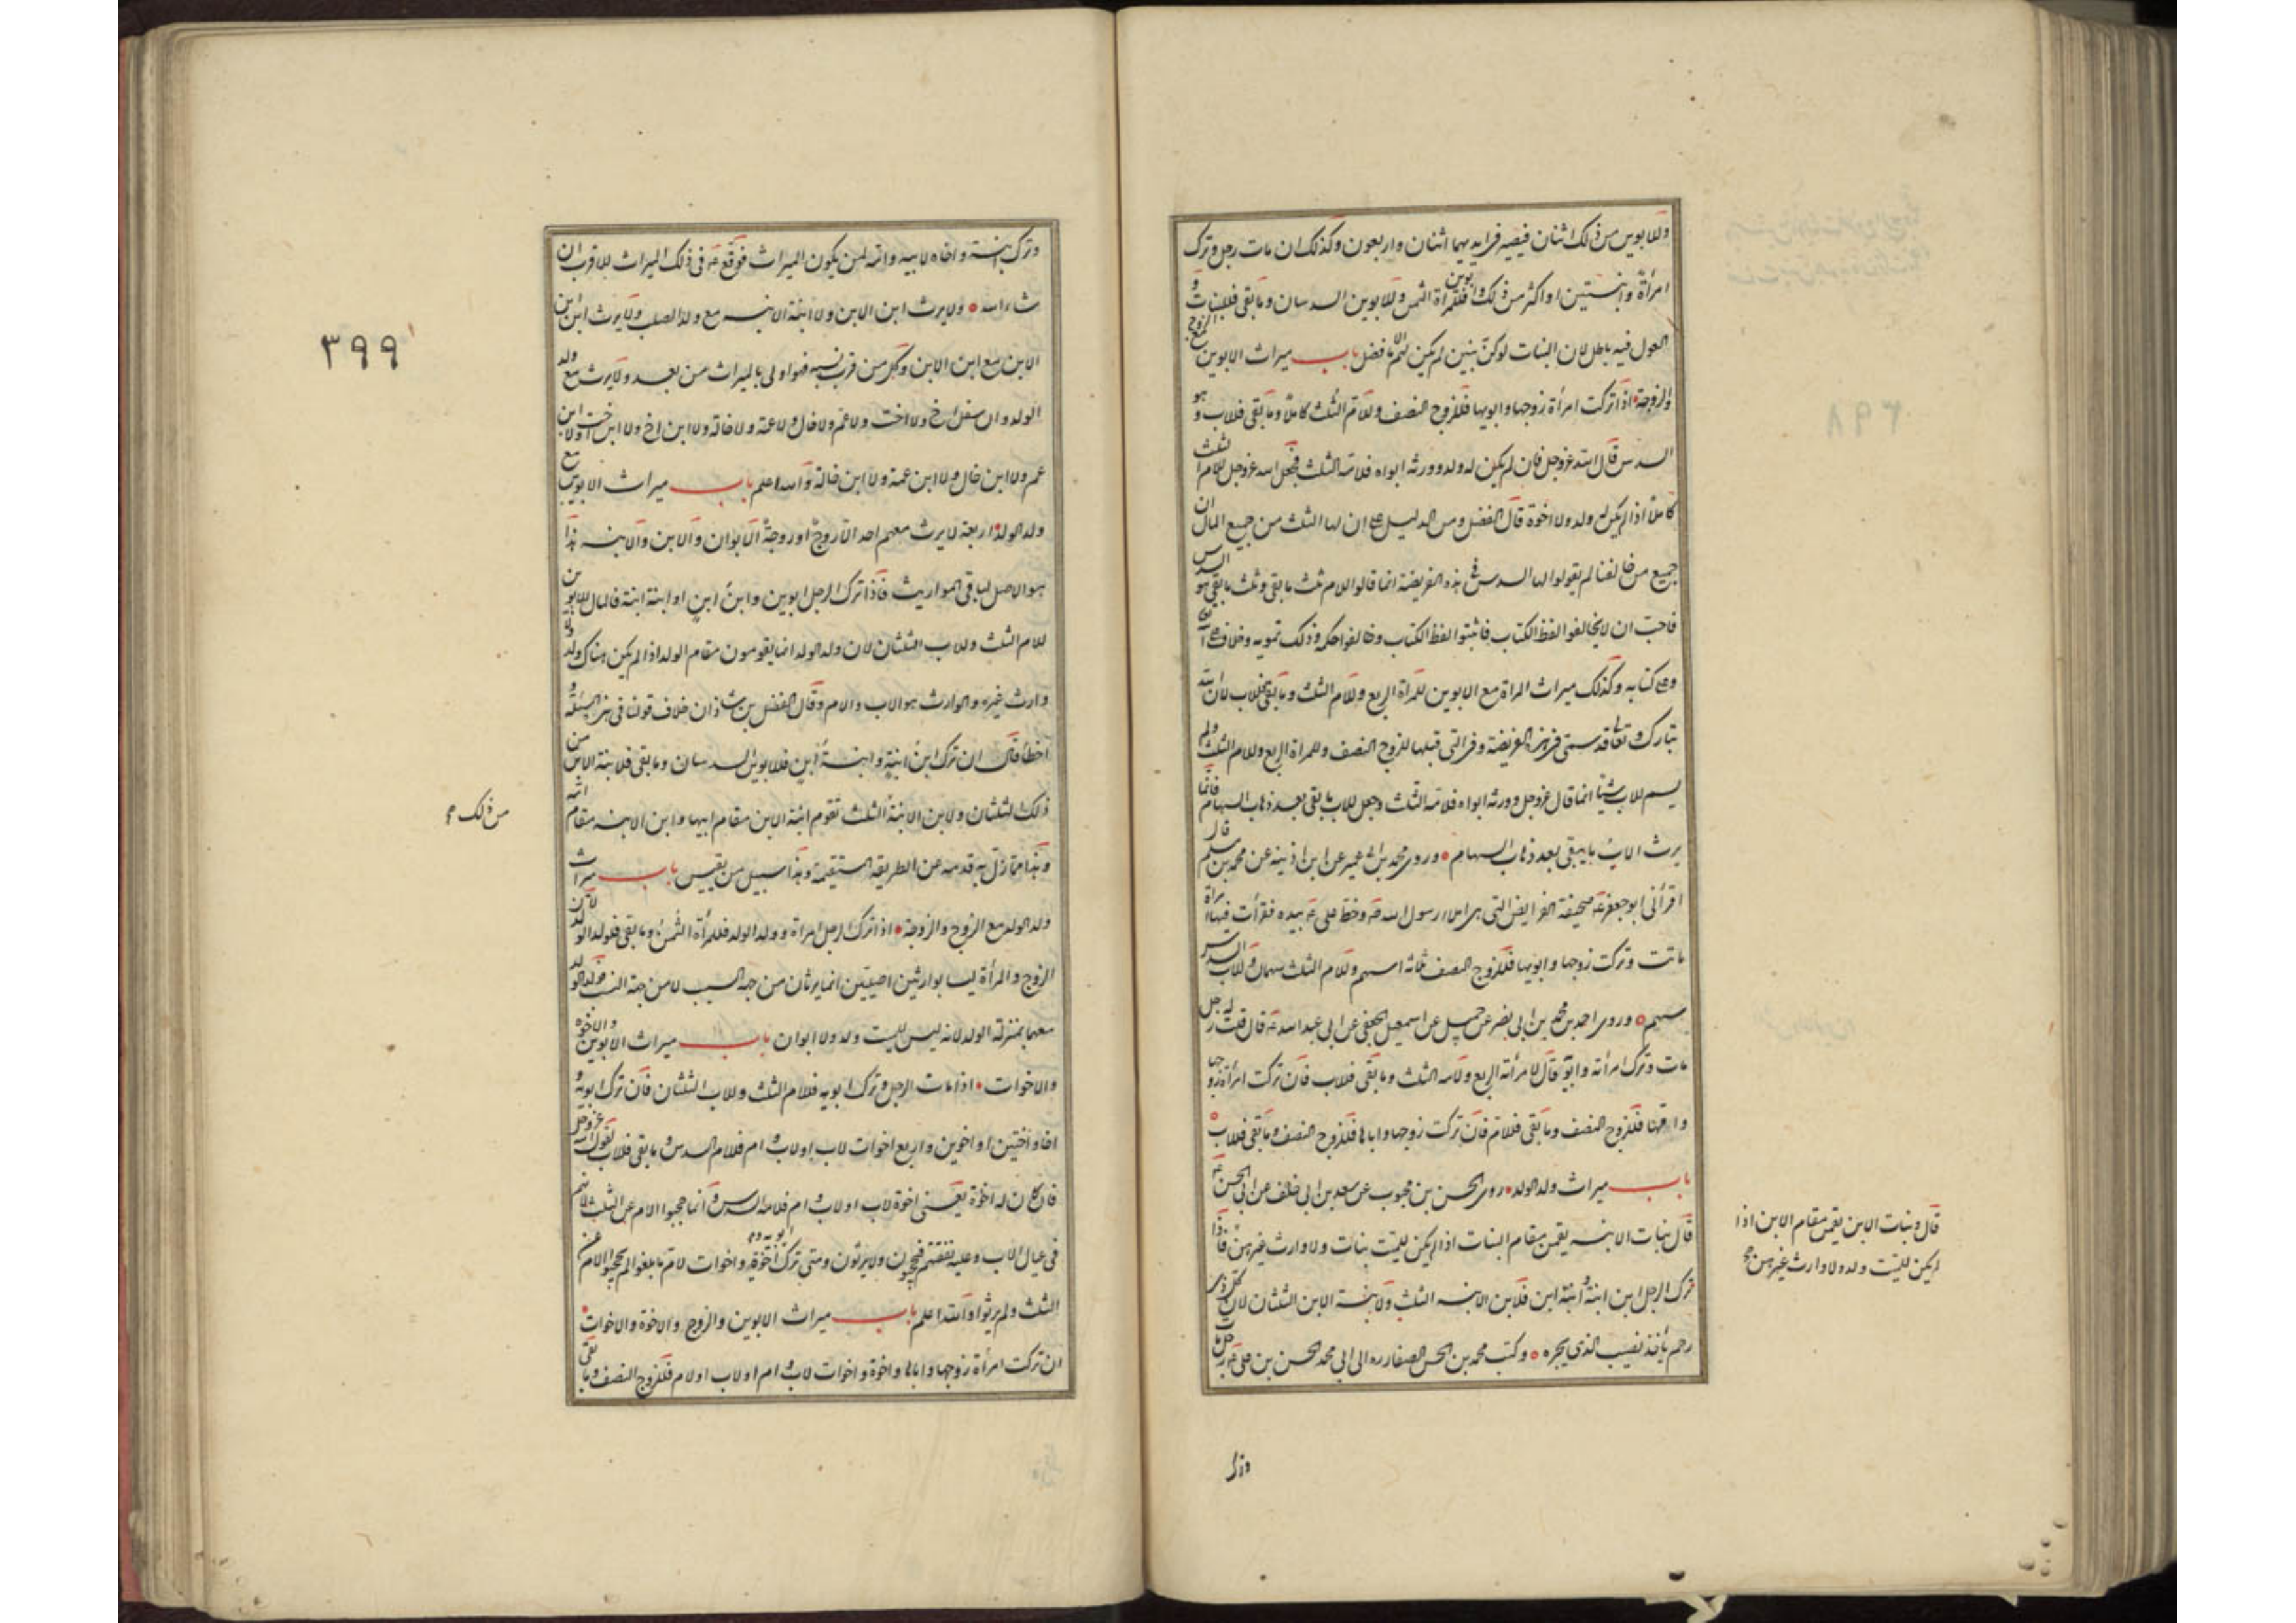 وللابوين من ذلك اثنان فيصير في ايديهما اثنان واربعون وكذلك ان مات رجل وترك
امرأة وابنتين او اكثر من ذلك وابوين فللمرأة الثمن وللابوين السدسان وما بقى فللبنات و
العول فيه باطل لان البنات لو كن بنين لم يكن لهم الا ما فضل باب ميراث الابوين مع الزوج
والزوجة اذا تركت امرأة زوجها وابويها فللزوج النصف وللام الثلث كاملا وما بقى فللاب وهو
السدس قال الله عز وجل فان لم يكن له ولد وورثه ابواه فلامه الثلث فجعل الله عز وجل للام الثلث
كاملا اذا لم يكن له ولد ولا اخوة قال الفضل ومن الدليل على ان لها الثلث من جميع المال ان
جميع من خالفنا لم يقولوا لها السدس فى هذه الفريضة انما قالوا للام ثلث ما بقى وثلث ما بقى هو السدس
فاحب ان لا يخالفوا لفظ الكتاب فاثبتوا لفظ الكتاب وخالفوا حكمه وذلك تمويه وخلاف على الله
وعلى كتابه وكذلك ميراث المراة مع الابوين للمرأة الربع وللام الثلث وما بقى فللاب لان الله
تبارك وتعالى قد سمى فى هذه الفريضة وفى التى قبلها للزوج النصف وللمراة الربع وللام الثلث ولم
يسم للاب شيئا انما قال عز وجل وورثه ابواه فلامه الثلث وجعل للاب ما بقى بعد ذهاب السهام فانما
يرث الاب ما يبقى بعد ذهاب السهام وروى محمد بن ابى عمير عن ابن اذينه عن محمد بن مسلم قال
اقرأنى ابو جعفر ع صحيفة الفرايض التى هى املاء رسول الله ص وخط على ع بيده فقرأت فيها امرأة
ماتت وتركت زوجها وابويها فللزوج النصف ثلثة اسهم وللام الثلث سهمان وللاب السدس
سهم وروى احمد بن محمد بن ابى نصر عن جميل عن اسمعيل الجعفى عن ابى عبد الله ع قال قلت له رجل
مات وترك امرأته وابويه قال لامرأته الربع ولامه الثلث وما بقى فللاب فان تركت امرأة زوجها
وامها فللزوج النصف وما بقى فللام فان تركت زوجها واباها فللزوج النصف وما بقى فللاب
باب ميراث ولد الولد روى الحسن بن محبوب عن سعد بن ابى خلف عن ابى الحسن ع
قال بنات الابنه يقمن مقام البنات اذا لم يكن للميت بنات ولا وارث غيرهن فاذا
ترك الرجل ابن ابنة وابنة ابن فلابن الابنه الثلث ولابنة الابن الثلثان لان كل ذى
رحم يأخذ نصيب الذى يجره وكتب محمد بن الحسن الصفار ره الى ابى محمد الحسن بن على ع رجل مات
قال وبنات الابن يقمن مقام الابن اذا
لم يكن للميت ولد ولا وارث غيرهن صح
وترك
وترك ابنة واخاه لابيه وامه لمن يكون الميراث فوقع ع فى ذلك الميراث للاقرب ان
شاء الله ولا يرث ابن الابن ولا ابنة الابنه مع ولد الصلب ولا يرث ابن ابن
الابن مع ابن الابن وكل من قرب نسبه فهو اولى بالميراث ممن بعد ولا يرث مع ولد
الولد وان سفل اخ ولا اخت ولا عم ولا خال ولا عمة ولا خالة ولا ابن اخ ولا ابن اخت ولا ابن
عم ولا ابن خال ولا ابن عمة ولا ابن خالة والله اعلم باب ميراث الابوين مع
ولد الولد اربعة لا يرث معهم احد الا زوج او زوجة الابوان والابن والابنه هذا
هو الاصل لنا فى المواريث فاذا ترك الرجل ابوين وابن ابن او ابنة ابنة فالمال للابوين
للام الثلث وللاب الثلثان لان ولد الولد انما يقومون مقام الولد اذا لم يكن هناك ولد ولا
وارث غيره والوارث هو الاب والام وقال الفضل بن شاذان خلاف قولنا فى هذه المسئلة و
اخطأ قال ان ترك ابن ابنة وابنة ابن فللابوين السدسان وما بقى فلابنة الابن من
ذلك الثلثان ولابن الابنة الثلث تقوم ابنة الابن مقام ابيها وابن الابنه مقام امه
وهذا مما زل به قدمه عن الطريقه المستقيمة وهذا سبيل من يقيس باب ميراث
ولد الولد مع الزوج والزوجة اذا ترك الرجل امراة وولد الولد فللمرأة الثمن وما بقى فلولد الولد لان
الزوج والمرأة ليسا بوارثين اصليين انما يرثان من جهة السبب لا من جهة النسب فولد الولد
معهما بمنزلة الولد لانه ليس للميت ولد ولا ابوان باب ميراث الابوين والاخوه
والاخوات اذا مات الرجل وترك ابويه فللام الثلث وللاب الثلثان فان ترك ابويه و
اخا واختين او اخوين واربع اخوات لاب او لاب وام فللام السدس وما بقى فللاب لقول الله عز وجل
فان كان له اخوة يعنى اخوة لاب او لاب وام فلامه السدس وانما حجبوا الام عن الثلث لانهم
فى عيال الاب وعليه نفقتهم فيحجبون ولا يرثون ومتى ترك ابويه واخوة واخوات لام ما بلغوا لم يحجبوا الام عن
الثلث ولم يرثوا والله اعلم باب ميراث الابوين والزوج والاخوة والاخوات
ان تركت امرأة زوجها واباها واخوة واخوات لاب وام او لاب او لام فللزوج النصف وما بقى
٣٩٩
من ذلك صح